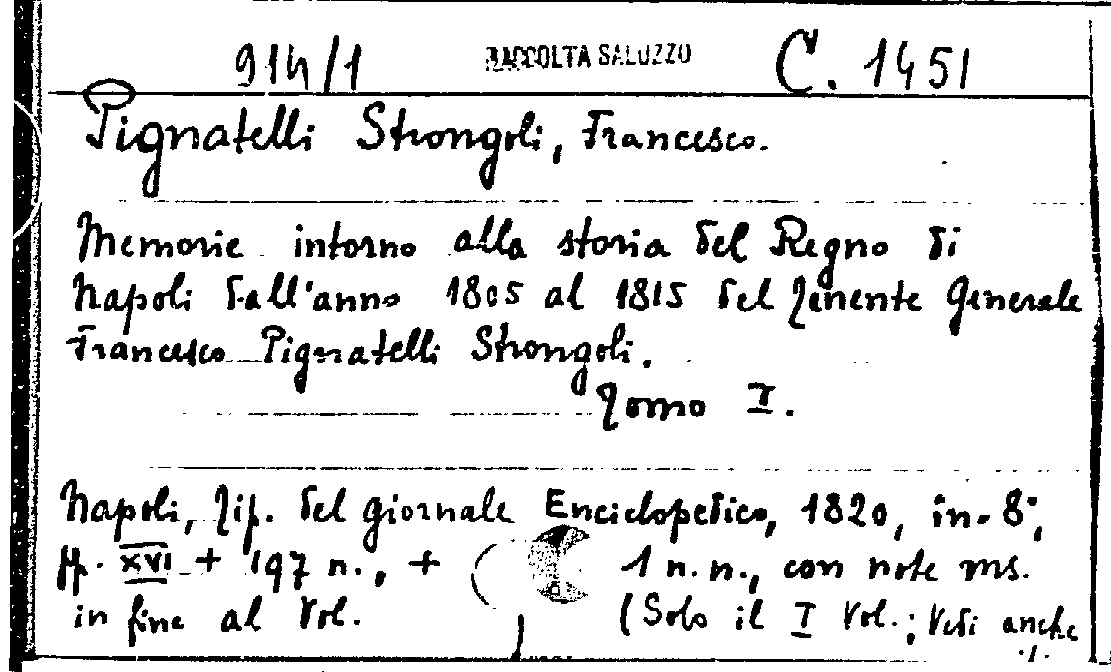 914/1 RACCOLTA SALUZZO C. 1451
Pignatelli Strongoli, Francesco.
Memorie intorno alla storia del Regno di
Napoli dall'anno 1805 al 1815 del Tenente Generale
Francesco Pignatelli Strongoli.
Tomo I.
Napoli, Tip. del giornale Enciclopedico, 1820, in-8°,
pp. XVI + 197 n., + 1 n.n., con note ms.
in fine al Vol. (Solo il I Vol.; Vedi anche